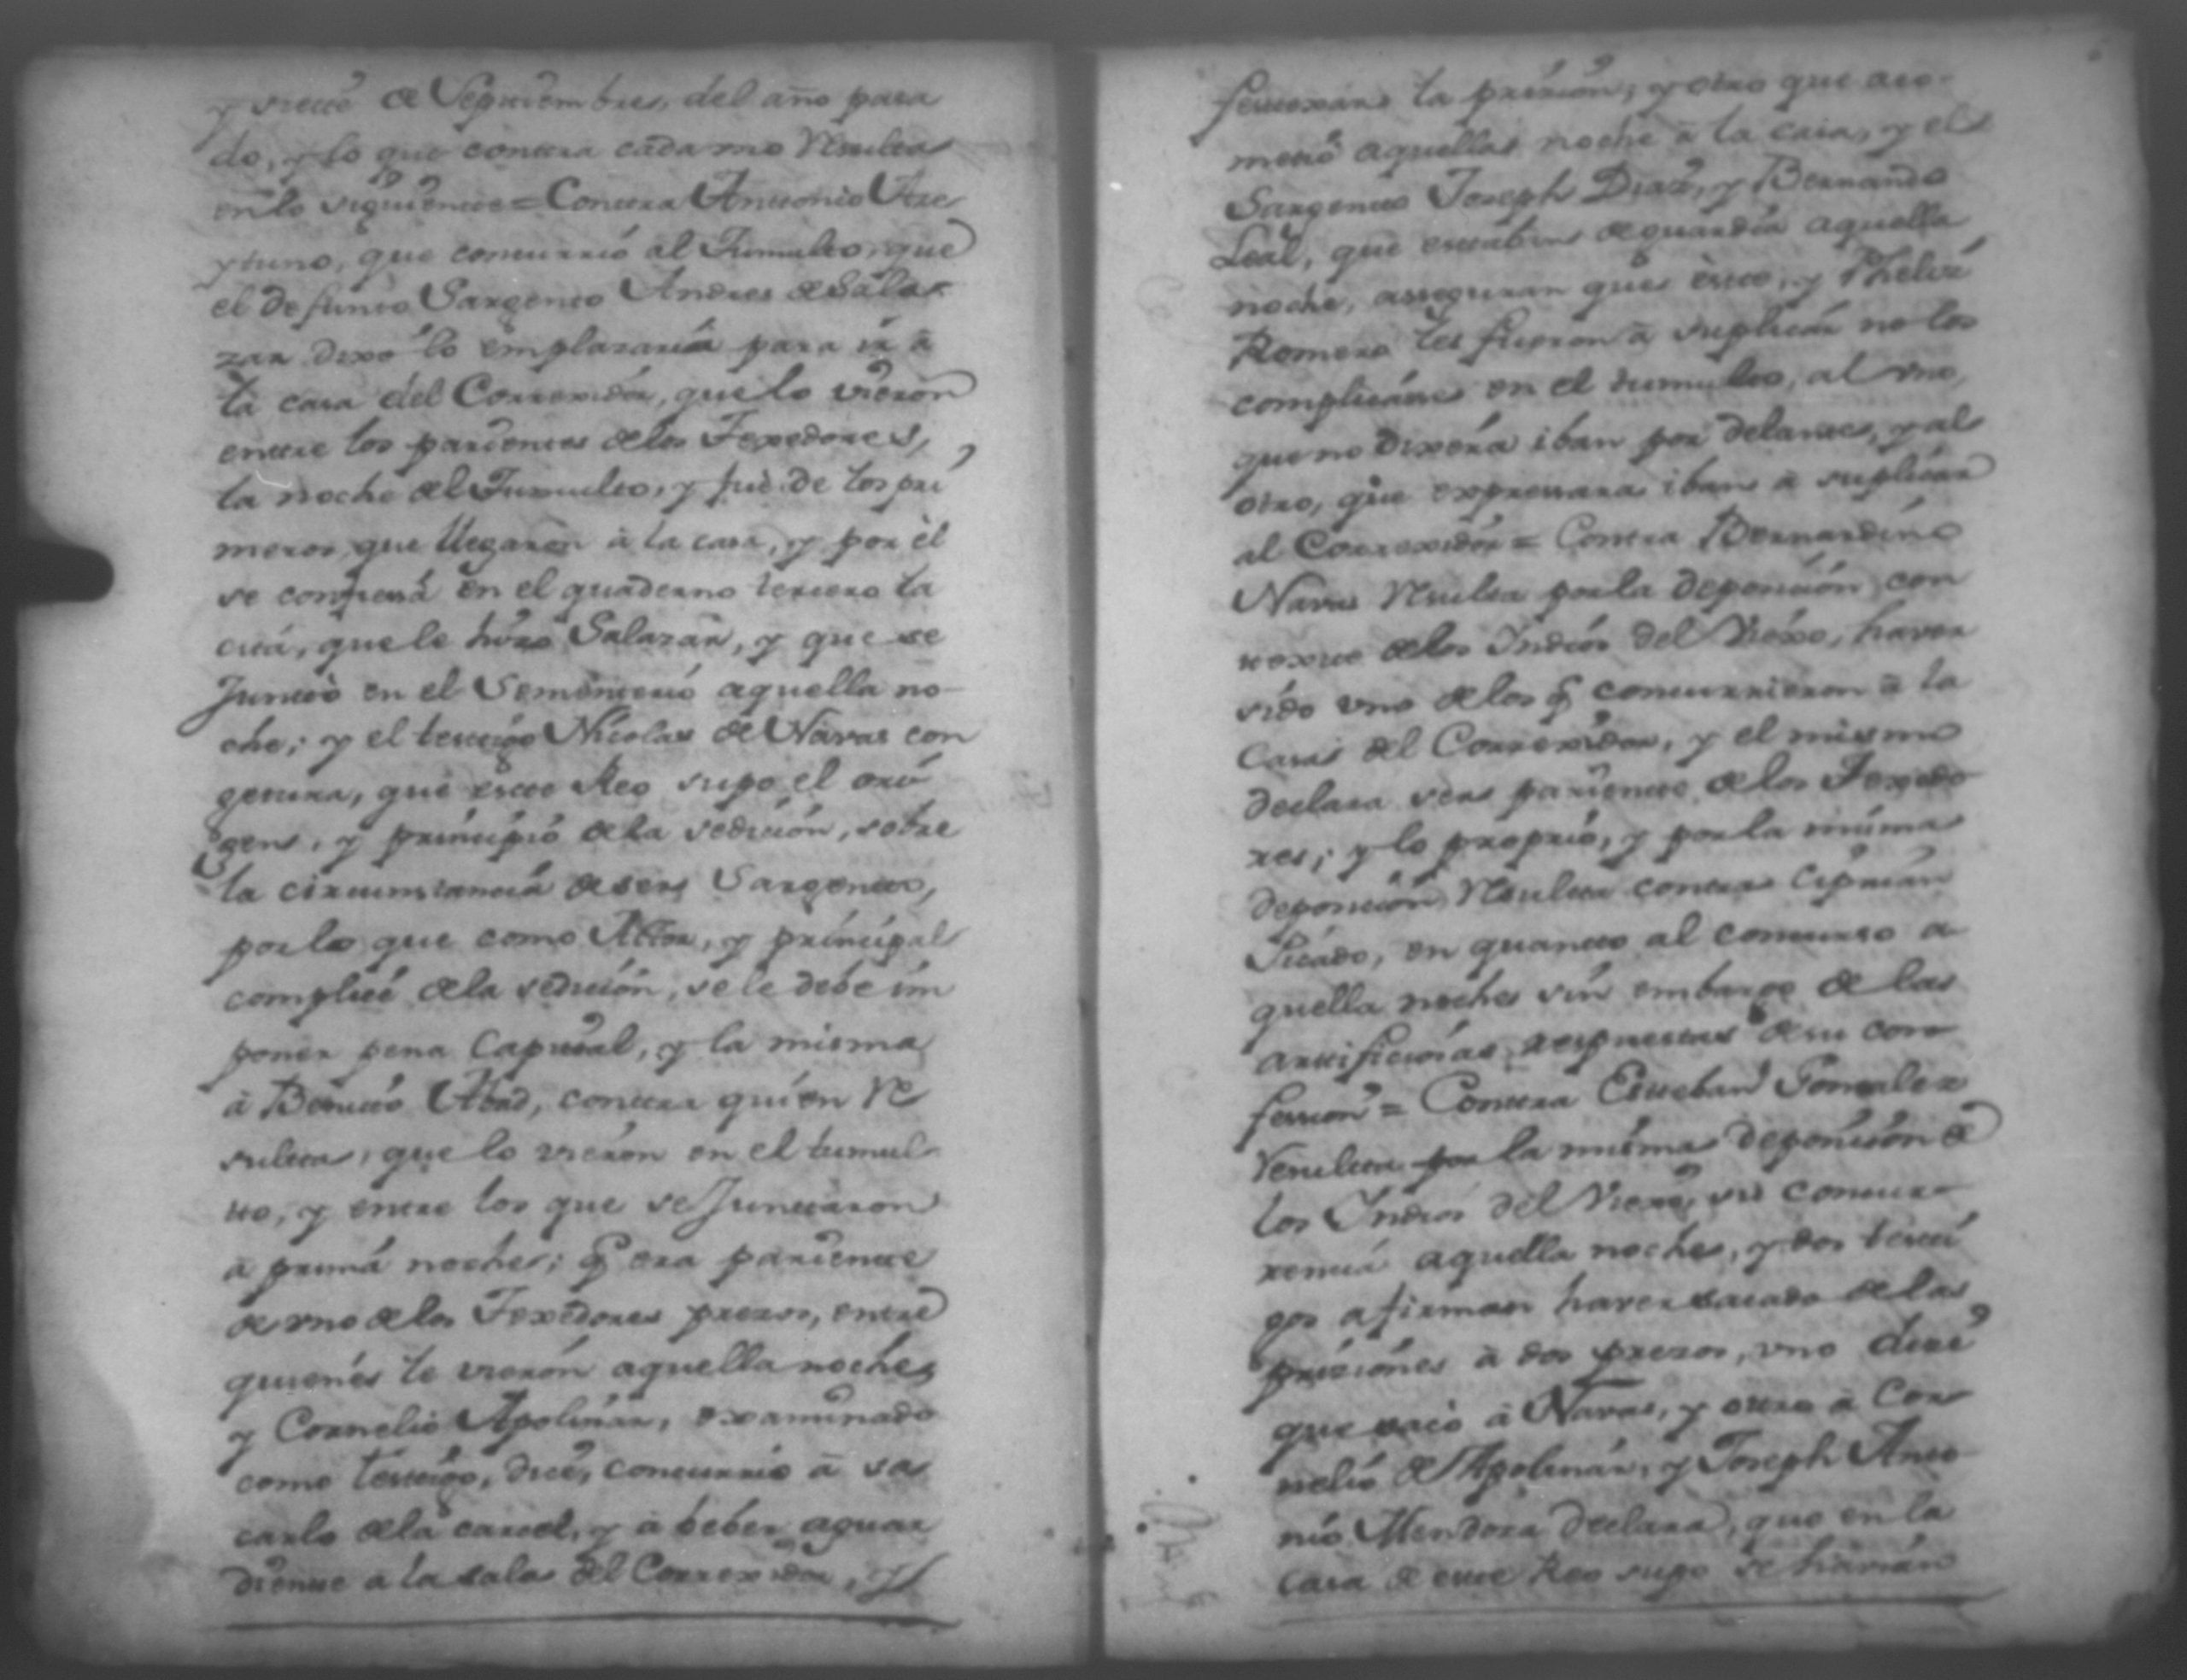 y siette de Septiembre, del año pasa
do, y lo que contra cada uno Resulta
en lo siguiente = Contra Antonio Are
ytuno, que concurrió al Tumulto, que
el defunto Sargento Andres de Sala-
zar dixo lo emplazaria para ir â
la casa del Correxidor, que lo vieron
entre los parientes de los Texedores,
la noche del Tumulto, y fuè de los pri
meros, que llegaron â la casa, y por èl
se confiesa en el quaderno tercero la
cita, que le hizo Salazar, y que se
Juntò en el Sementerio aquella no-
che; y el testigo Nicolas de Navas con
getura, que este Reo supo el ori
gen, y principio de la sedición, sobre
la circunstancia de ser Sargento,
por lo que como Actor, y principal
complice de la sedición, se le debe im
poner pena Capital, y la misma
â Benito Abad, contra quien Re
sulta, que lo vieron en el tumul-
to, y entre los que se Juntaron
â prima noche; q̃ era pariente
de uno de los Texedores presos, entre
quienes le vieron aquella noche,
y Cornelio Apolinar, examinado
como testigo, dice, concurrio â sa
carlo de la carcel, y â beber aguar
diente a la sala del Correxidor, y
la prision; y otro que aco-
metiò aquella noche â la casa, y el
Sargento Joseph Diaz, y Bernardo
Leal, que estaban de guardia aquella
noche, asseguran que este, y Phelix
Romero les fueron â suplicar no los
complicasen en el tumulto, al uno,
que no dixera iban por delante, y al
otro, que expressara iban â suplicar
al Correxidor = Contra Bernardino
Navas Resulta por la deposición con
texte de los Indios del Viexo, haver
sido uno de los q̃ concurrieron â la
Casa del Correxidor, y el mismo
declara ser pariente de los Texedo
res; y lo proprio, y por la misma
deposición Resulta contra Ciprian
Sicado, en quanto al concurso a
quella noche sin embargo de las
artificiosas respuestas de su con
fession = Contra Esteban Gonzalez
Resulta por la misma deposición de
los Indios del Viexo, su concur-
rencia aquella noche, y dos testi
gos afirman haver sacado de las
priciones â dos presos, uno dice
que sacò â Navas, y otro â Cor
nelio de Apolinar, y Joseph Anto
nio Mendoza declara, que en la
casa de este Reo supo se havian